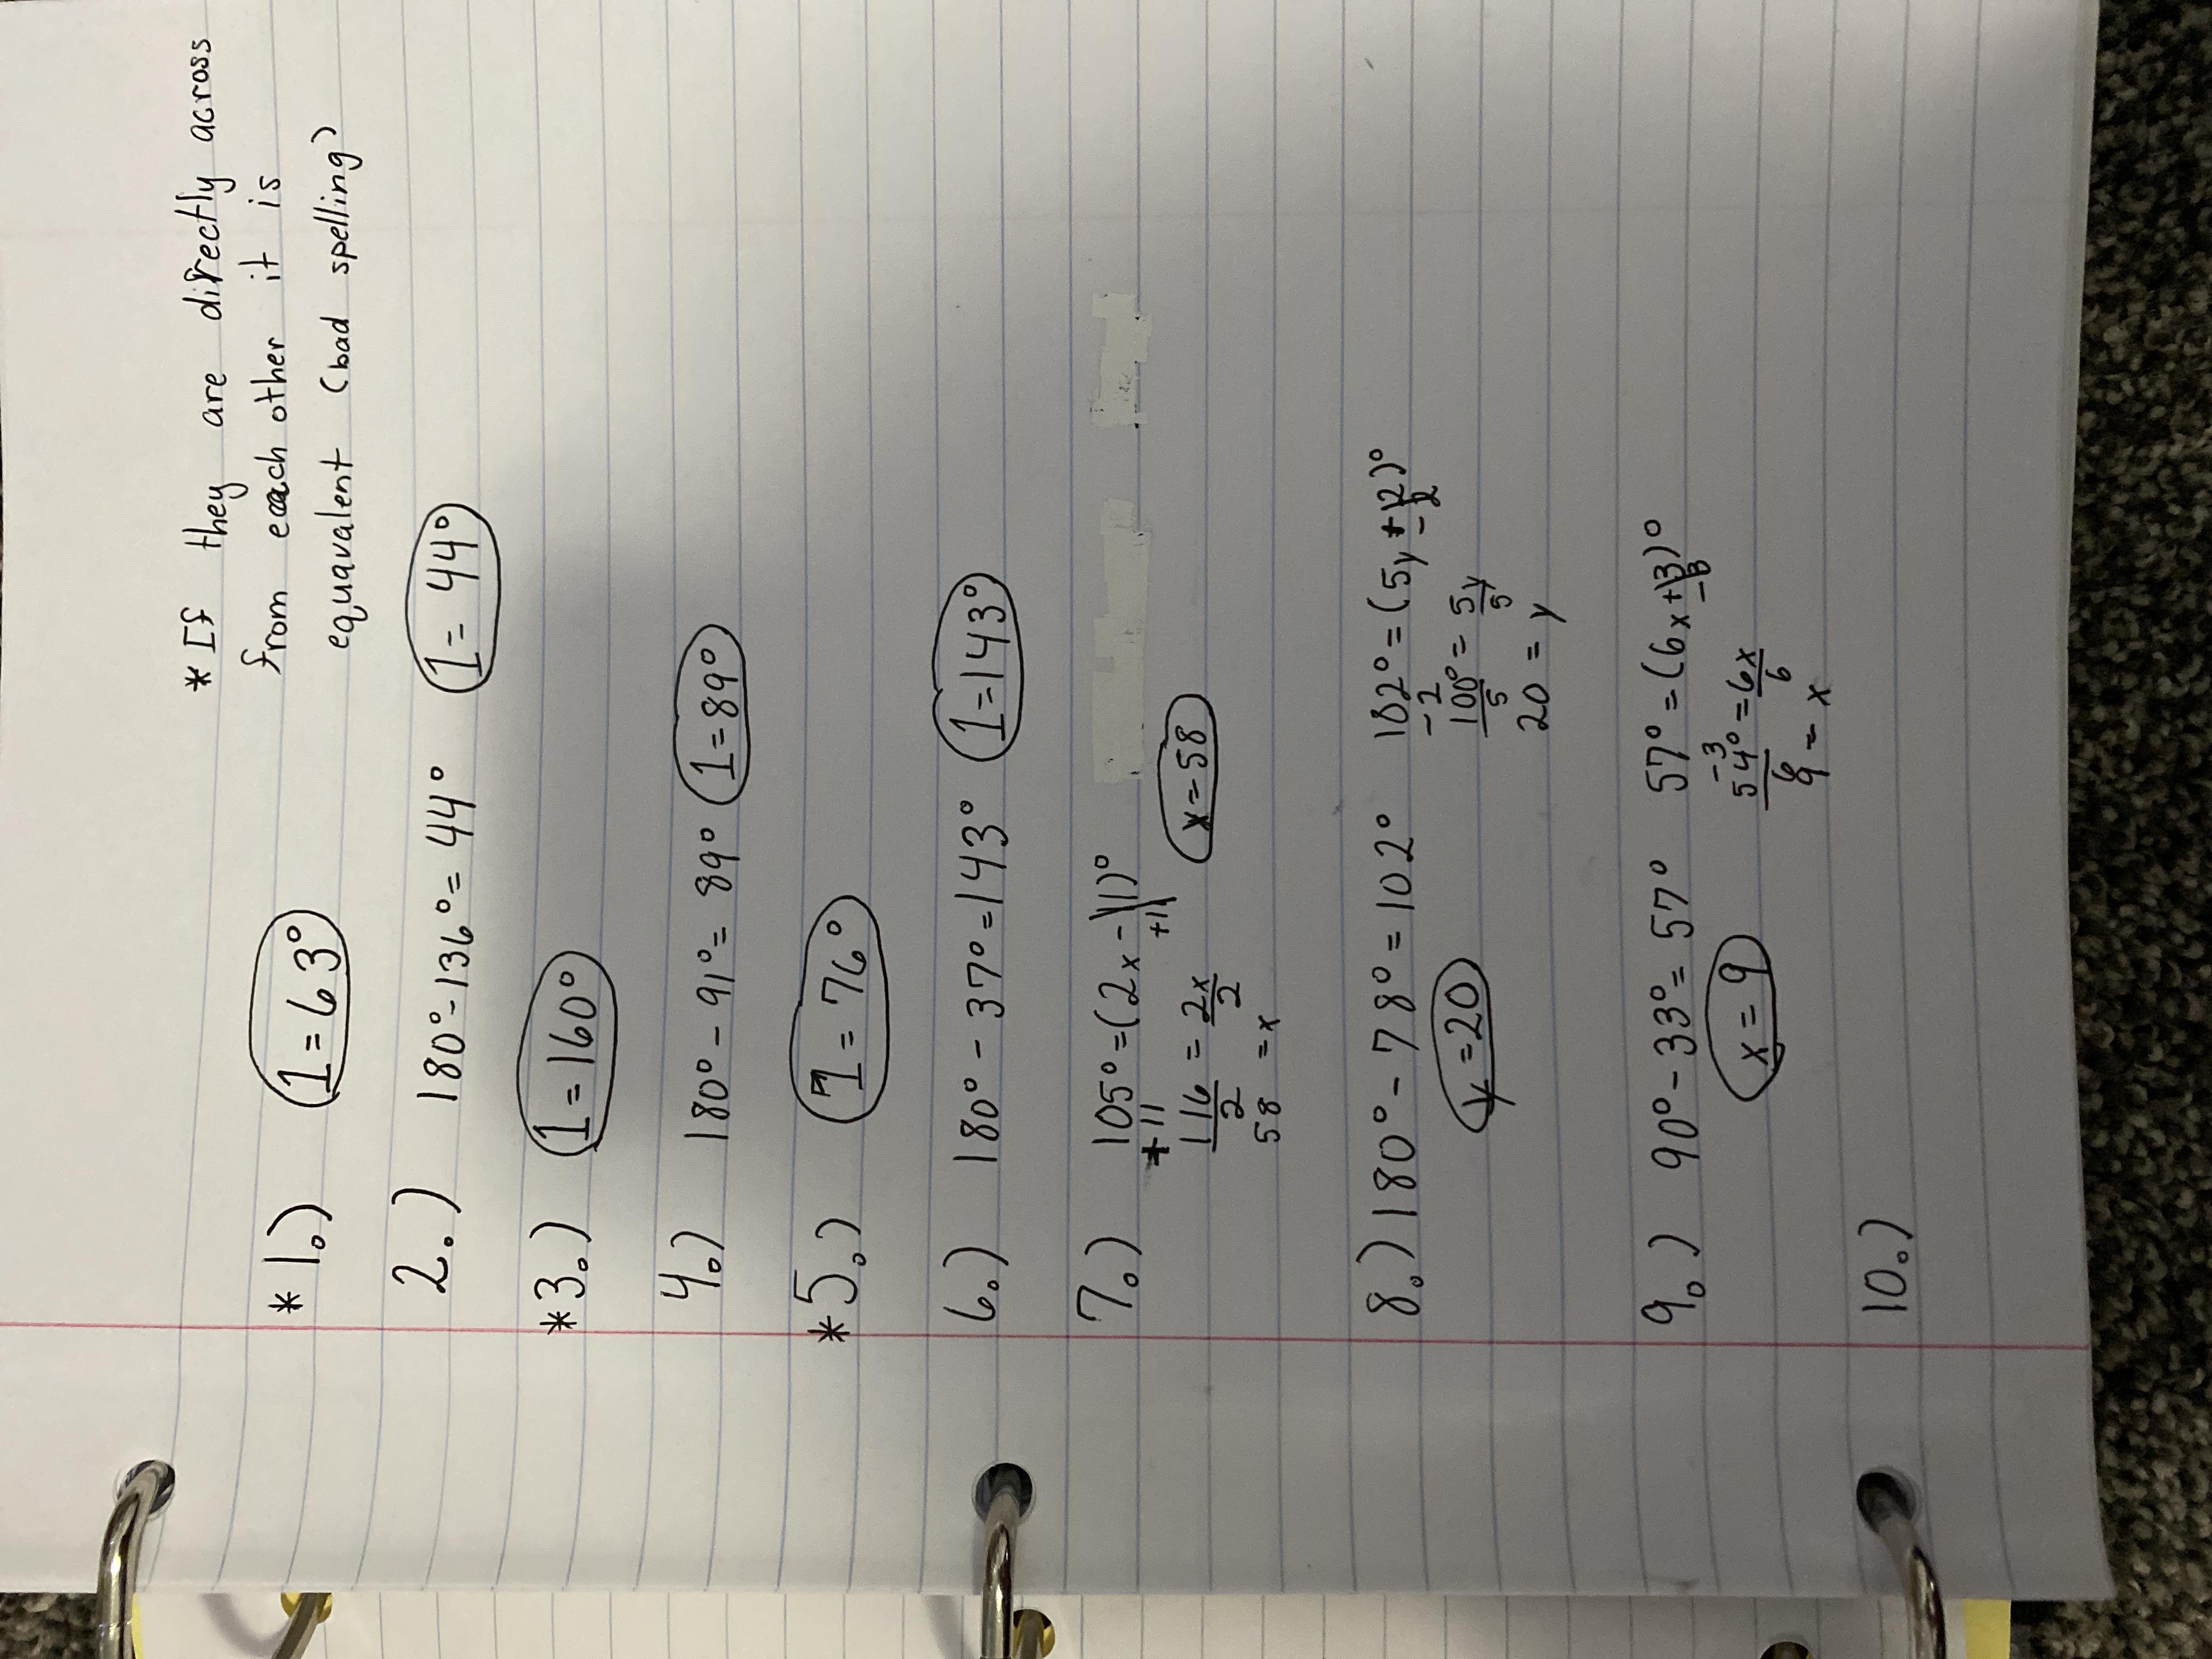 * If they are directly across
from each other it is
equavalent (bad spelling)
* 1.) 1 = 63°
2.) 180° - 136° = 44° 1 = 44°
*3.) 1 = 160°
4.) 180° - 91° = 89° 1 = 89°
*5.) 1 = 76°
6.) 180° - 37° = 143° 1 = 143°
7.) 105° = (2x - 11)°
+ 11 +11
116/2 = 2x/2 x = 58
58 = x
8.) 180° - 78° = 102° 102° = (5y + 2)°
-2 -2
y = 20 100°/5 = 5y/5
20 = y
9.) 90° - 33° = 57° 57° = (6x + 3)°
-3 -3
x = 9 54°/6 = 6x/6
9 = x
10.)